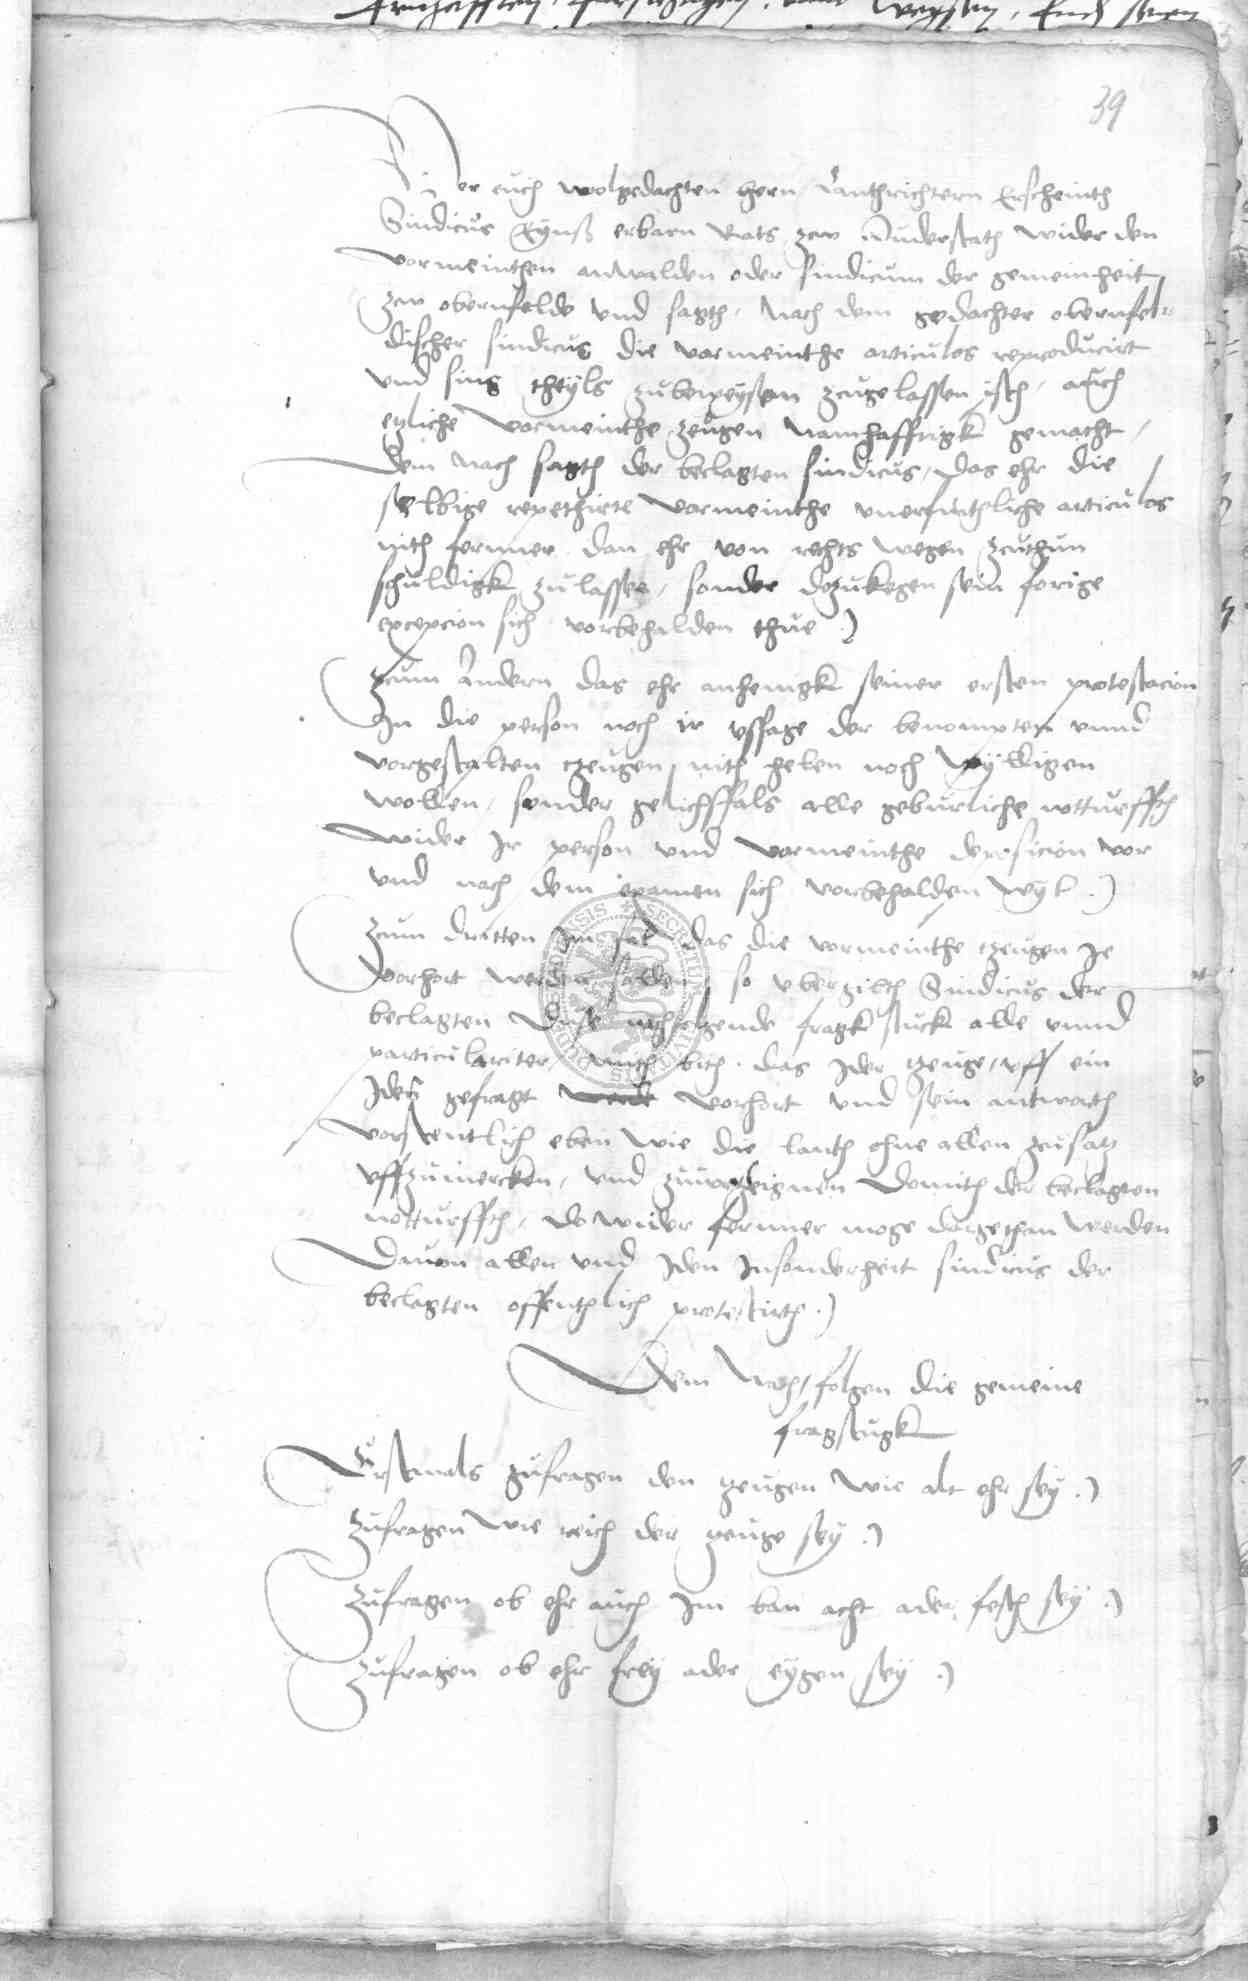 39
Vor euch wolgedachten hern Lanthrichtern Erscheinth
Sindicus Eynß erbarn Rats zcw Duderstath wider den
vormeinthen anwalden oder sindicum der gemeinheit
zcw obernfelde vnd sagth, Nach dem gedachter obernfel-
discher sindicus die vormeinthe articulos reproducirt
vnd sins theyls zubeweyssen zcugelassen isth, auch
etzliche vormeinthe zeugen namhafftigk gemacht,
dem nach sagth der beclagten sindicus, das ehr die
selbige repethirte vormeinthe articulos
nith fernner dan ehr von rechts wegen zcuthun
schuldigk zulasse, sonder dozukegen sein forige
excepcion sich vorbehalden thue
Zcum andern das ehr anhengik seiner ersten protestacion
In die person noch ir vssage der benompten vnnd
vorgestalten tzeugen nith helen noch wylligen
wollen, sonder gelichffals alle geburliche notturffth
wider Ir person vnd vormeinthe deposicion vor
vnd nach dem examen sich vorbehalden wyl
Zcum dritten Im fal das die vormeinthe tzeugen Je
vorhort werden solten so vbergibth Sindicus der
beclagten disse nachfolgende fragk stuck alle vnnd
particulariter mith bith das Ider tzeuge vff ein
Ider gefragt vorhort vnd sein antworth
vorstentlich eben wie die lauth ohne allen zcusatz
vffzumercken, vnd zuuorzeignen Domith der beclagten
notturffth, do wider fernner moge dargethan werden
Dauon allen vnd Iden Insonderheit sindicus der
beclagten offenthlich protestirth
Dem Nach folgen die gemeine
fragstugk
Erstmals zufragen den tzeugen wie alt ehr sey
Zufragen wie reich der zeuge sey
Zufragen ob ehr auch Im ban acht ader festh sey
Zufragen ob ehr frey ader eygen sey